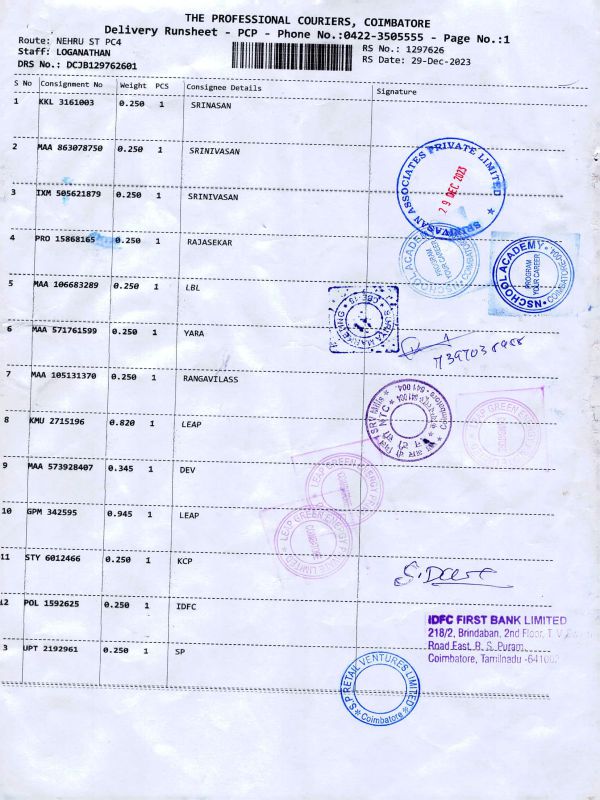 THE PROFESSIONAL COURIERS, COIMBATORE
Delivery Runsheet - PCP - Phone No.:0422-3505555 - Page No.:1
Route: NEHRU ST PC4
Staff: LOGANATHAN
DRS No.: DCJB129762601
RS No.: 1297626
RS Date: 29-Dec-2023
S No Consignment No Weight PCS Consignee Details Signature
1 KKL 3161003 0.250 1 SRINASAN
2 MAA 863078750 0.250 1 SRINIVASAN
SRINIVASAN ASSOCIATES PRIVATE LIMITED
29 DEC 2023
3 IXM 505621879 0.250 1 SRINIVASAN
4 PRO 15868165 0.250 1 RAJASEKAR
NSCHOOL ACADEMY
PROGRAM
YOUR CAREER
NSCHOOL ACADEMY
COIMBATORE
PROGRAM
YOUR CAREER
5 MAA 106683289 0.250 1 LBL
CBE-13
6 MAA 571761599 0.250 1 YARA
7397038988
7 MAA 105131370 0.250 1 RANGAVILASS
SRV Mills
NTC
Coimbatore - 641 004
8 KMU 2715196 0.820 1 LEAP
LEAP GREEN ENERGY
9 MAA 573928407 0.345 1 DEV
LEAP GREEN ENERGY
10 GPM 342595 0.945 1 LEAP
LEAP GREEN ENERGY PRIVATE LIMITED
11 STY 6012466 0.250 1 KCP
12 POL 1592625 0.250 1 IDFC
IDFC FIRST BANK LIMITED
218/2, Brindaban, 2nd Floor, T V
Road East, R. S. Puram,
Coimbatore, Tamilnadu -641002
3 UPT 2192961 0.250 1 SP
S.P RETAIL VENTURES LIMITED
Coimbatore